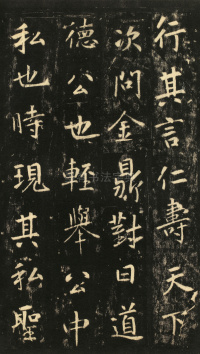 行其言仁壽天下
次問金鼎對曰道
德公也輕舉公中
私也時現其私聖